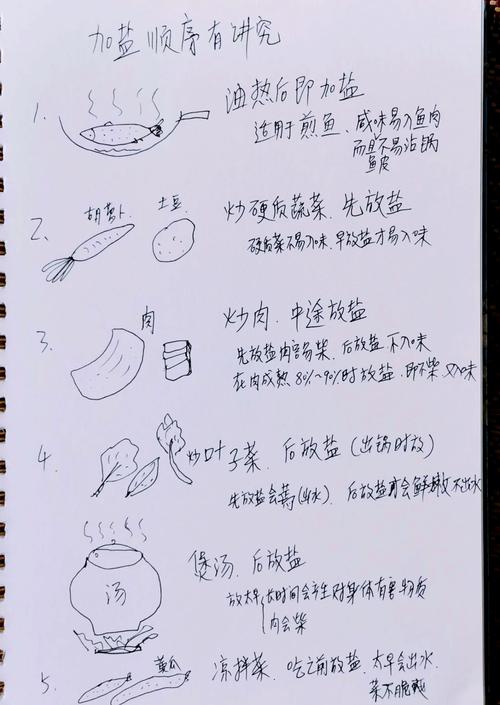 加盐顺序有讲究
1.
油热后即加盐
适用于煎鱼、咸味易入鱼肉
而且不易沾锅
鱼皮
2.
胡萝卜
土豆
炒硬质蔬菜.先放盐
硬质菜不易入味.早放盐才易入味
3.
肉
炒肉.中途放盐
先放盐肉容易柴.后放盐不入味
在肉成熟80%~90%时放盐.即不柴又入味
4.
炒叶子菜.后放盐(出锅时放)
先放盐会蔫(出水).后放盐才会鲜嫩不出水
汤
煲汤.后放盐
放太早 长时间会产生对身体有害物质
肉会柴
5.
黄瓜
凉拌菜.吃之前放盐.太早会出水.
菜不脆